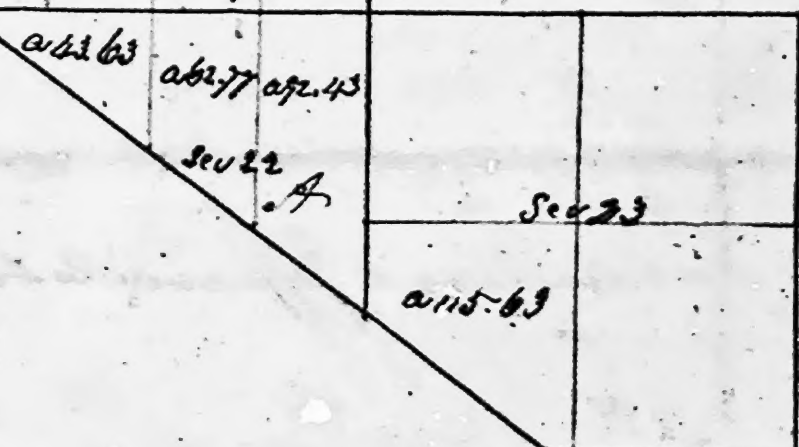 a 43.63
a 62.77 a 92.43
Sec 22
A
Sec 23
a 115.63